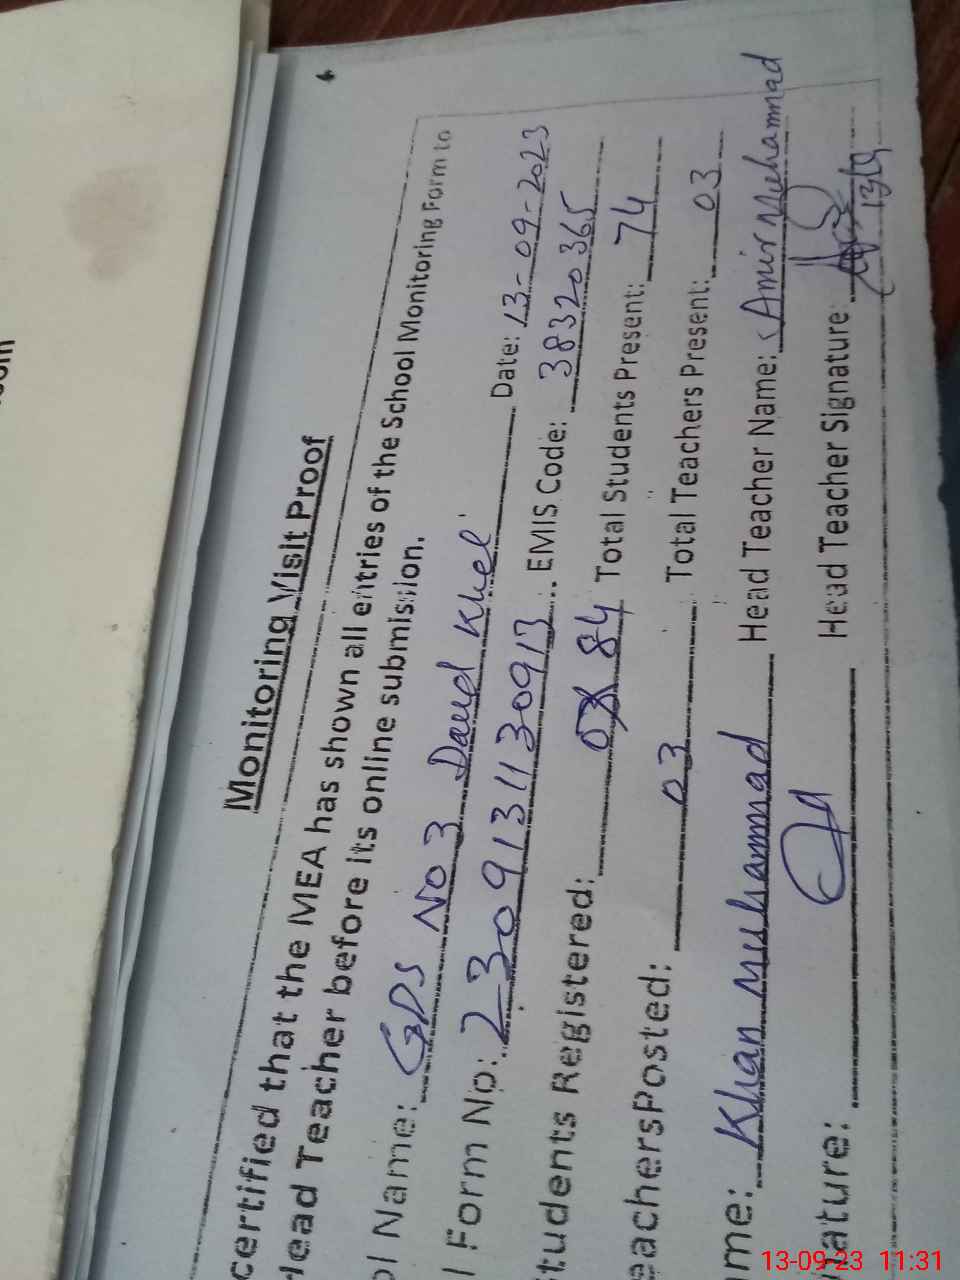 Monitoring Visit Proof
certified that the MEA has shown all entries of the School Monitoring Form to
Head Teacher before its online submission.
ol Name: GPS No 3 Daud Khel Date: 13-09-2023
l Form No: 23091311 30913 EMIS Code: 38320365
Students Registered: 84 Total Students Present: 74
eachersPosted: 03 Total Teachers Present: 03
me: Khan Muhammad Head Teacher Name: Amir Muhammad
nature: Head Teacher Signature: 13/9
13-09-23 11:31